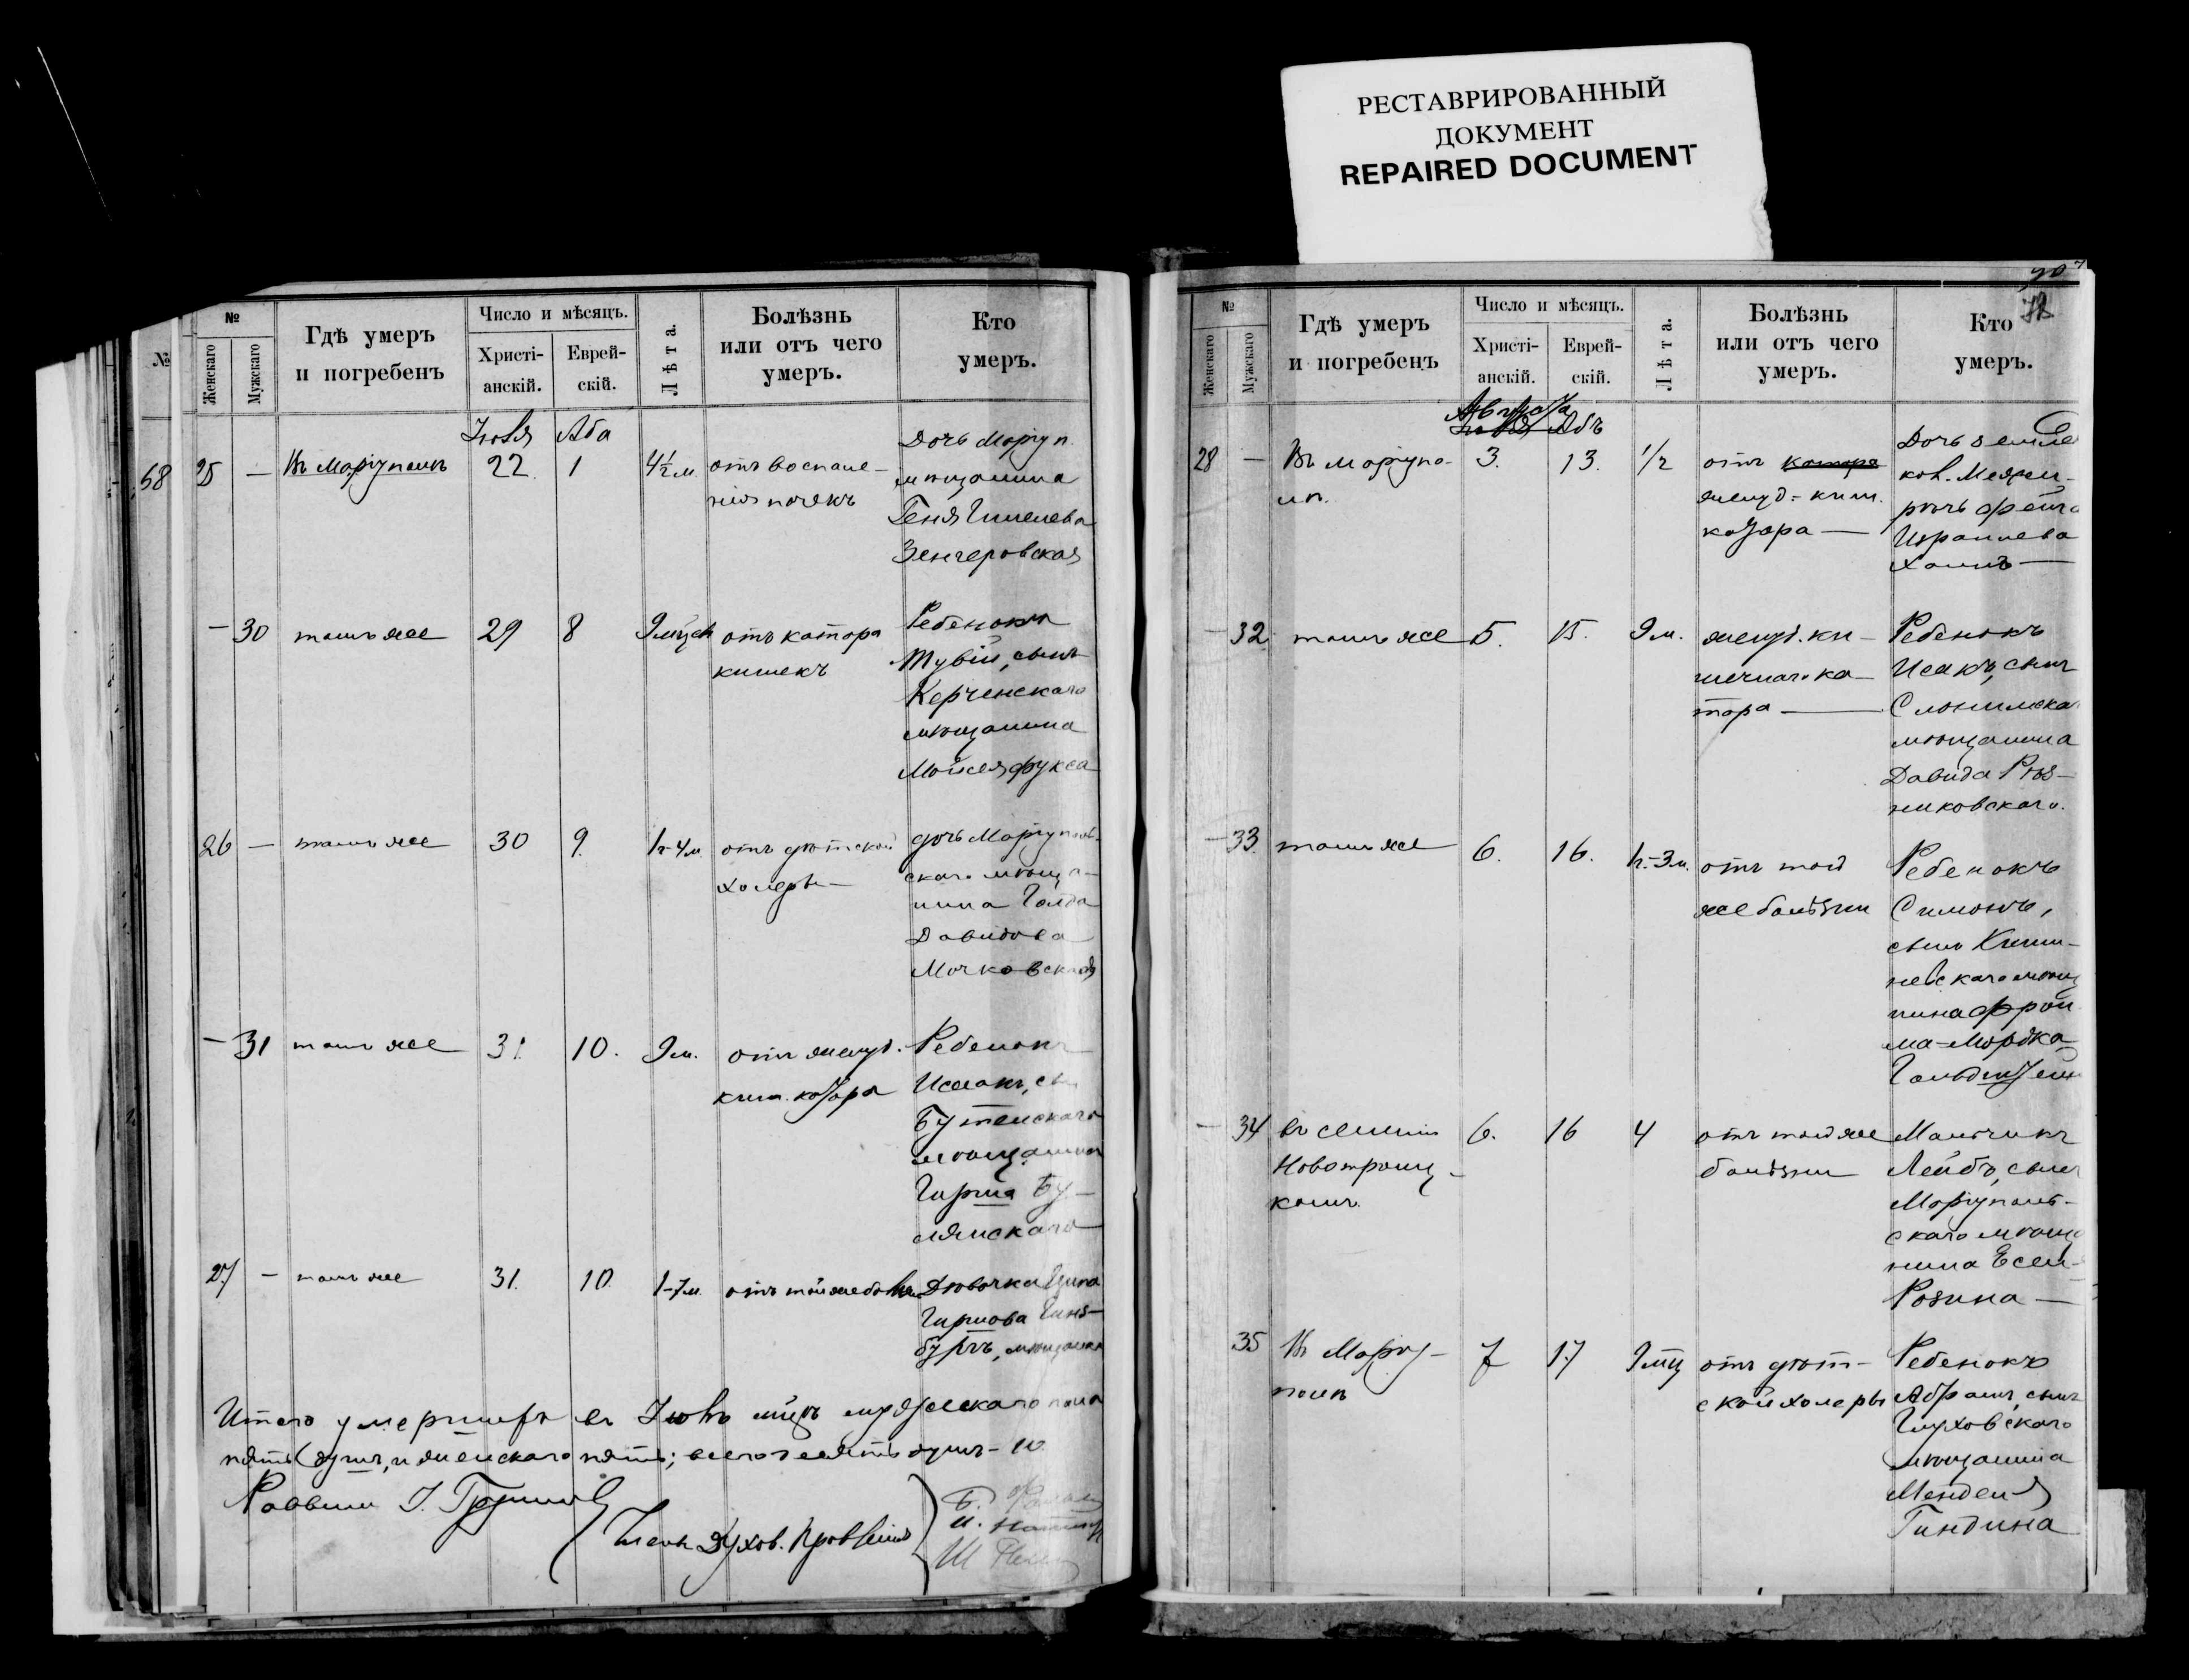 РЕСТАВРИРОВАННЫЙ
ДОКУМЕНТ
REPAIRED DOCUMENT
№
№
Женскаго
Мужскаго
Гдѣ умеръ
и погребенъ
Число и мѣсяцъ.
Христі-
анскій.
Еврей-
скій.
Лѣта.
Болѣзнь
или отъ чего
умеръ.
Кто
умеръ.
68
25 — Въ Маріуполѣ
Іюля 22
Аба 1
4½ м.
отъ воспале-
нія почекъ
Дочь Маріуп.
мѣщанина
Геня Гилелева
Зенгеровская
— 30 тамъ же 29 8
отъ катара
кишекъ
Ребенокъ
Тувій, сынъ
Керченскаго
мѣщанина
Мойсея Фукса
26 — тамъ же 30 9. 1-4 м.
отъ дѣтской
холеры —
дочь Маріуполь-
скаго мѣща-
нина Голда
Давидова
Мочковская
— 31 тамъ же 31. 10. 9 м.
отъ желуд.
киш. катара
Ребенокъ
Исаакъ,
мѣщанина
Гирша Бу-
лянскаго
27 — тамъ же 31. 10. 1-7 м.
отъ той же
Дѣвочка
Гиршова Гинз-
бургъ,
Итого умершихъ въ Іюлѣ мѣц. мужескаго пола
пять душъ, и женскаго пять; всего десять душъ - 10
Раввинъ І.
Члены Духов. Правленія
№
Женскаго
Мужскаго
Гдѣ умеръ
и погребенъ
Число и мѣсяцъ.
Христі-
анскій.
Еврей-
скій.
Лѣта.
Болѣзнь
или отъ чего
умеръ.
Кто
умеръ.
28 — Въ Маріупо-
лѣ.
Августа 3.
Абъ 13.
1/2
отъ катара
желуд.-киш.
катара —
Дочь землев
Израилева
— 32 тамъ же 5. 15. 9 м.
желуд. ки-
шечнаго ка-
тара —
Ребенокъ
Исакъ, сынъ
Слонимска
мѣщанина
Давида Рѣз-
никовскаго.
— 33. тамъ же 6. 16. 1-3 м.
отъ той
же болѣзни
Ребенокъ
Симонъ,
сынъ Киши-
невскаго мѣщ
нина Фрои
ма-Мордка
— 34 въ селеніи
Новотроиц-
комъ.
6. 16 4
отъ той же
болѣзни
Мальчикъ
Лейбъ, сынъ
Маріуполь-
скаго мѣща
нина Есел
Розина —
35 Въ Маріу-
полѣ
7 17
отъ дѣт-
ской холеры
Ребенокъ
Абрамъ, сынъ
Глуховскаго
мѣщанина
Менделя
Гиндина